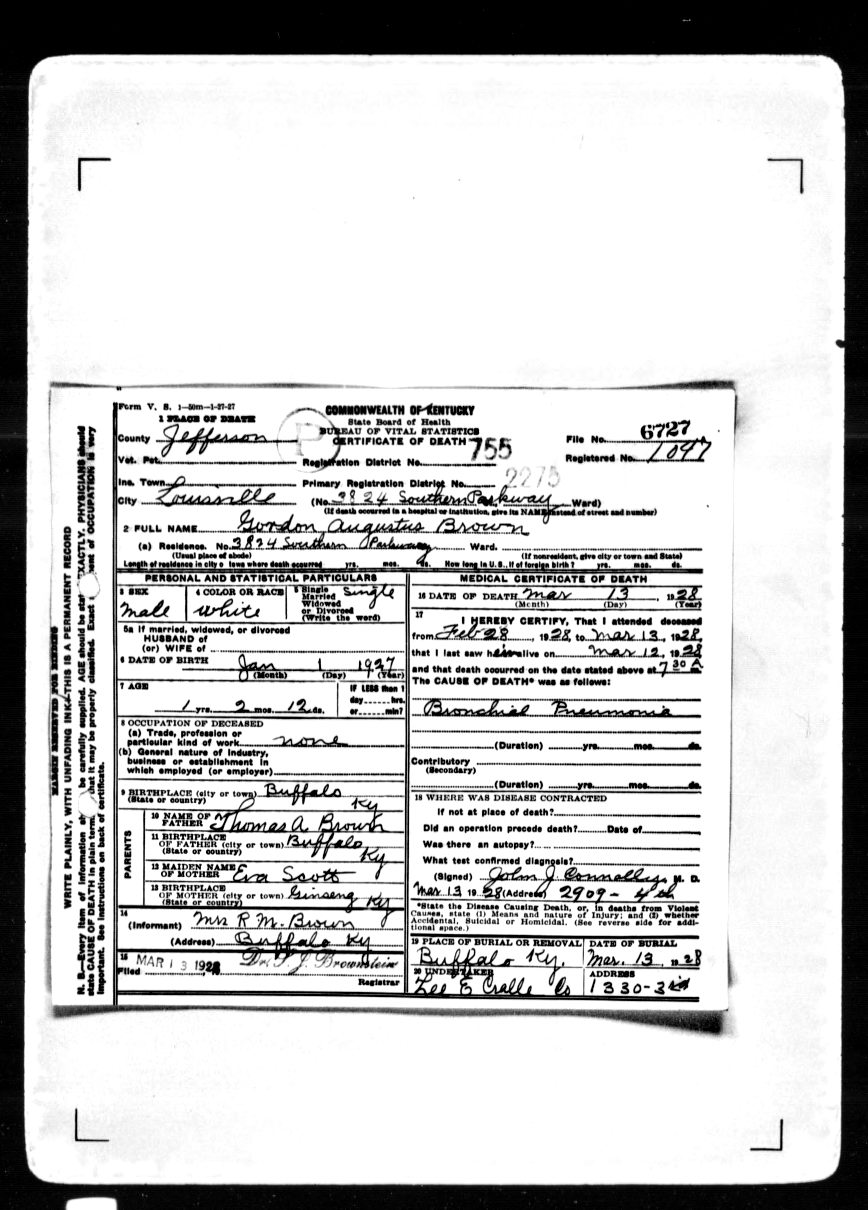 Form V. S. 1—50m—1-27-27
COMMONWEALTH OF KENTUCKY
State Board of Health
BUREAU OF VITAL STATISTICS
CERTIFICATE OF DEATH
1 PLACE OF DEATH
County Jefferson
P
755
File No. 6727
Vot. Pct.
Registration District No.
Registered No. 1047
Ins. Town
Primary Registration District No. 2275
City Louisville (No. 3824 Southern Parkway Ward)
(If death occurred in a hospital or institution, give its NAME instead of street and number)
2 FULL NAME Gordon Augustus Brown
(a) Residence. No. 3824 Southern Parkway Ward.
(Usual place of abode) (If nonresident, give city or town and State)
Length of residence in city or town where death occurred yrs. mos. ds. How long in U. S., if of foreign birth? yrs. mos. ds.
PERSONAL AND STATISTICAL PARTICULARS
3 SEX
male
4 COLOR OR RACE
white
5 Single
Married
Widowed
or Divorced
(Write the word)
Single
5a If married, widowed, or divorced
HUSBAND of
(or) WIFE of
6 DATE OF BIRTH Jan 1 1927
(Month) (Day) (Year)
7 AGE
1 yrs. 2 mos. 12 ds.
IF LESS than 1
day hrs.
or min?
8 OCCUPATION OF DECEASED
(a) Trade, profession or
particular kind of work none
(b) General nature of industry,
business or establishment in
which employed (or employer)
9 BIRTHPLACE (city or town) Buffalo
(State or country) Ky
PARENTS
10 NAME OF
FATHER Thomas A Brown
11 BIRTHPLACE
OF FATHER (city or town) Buffalo
(State or country) Ky
12 MAIDEN NAME
OF MOTHER Eva Scott
13 BIRTHPLACE
OF MOTHER (city or town) Ginseng
(State or country) Ky
14
(Informant) Mrs R M. Brown
(Address) Buffalo Ky
15
Filed MAR 13 1928 Dr. J. Brownstein
Registrar
MEDICAL CERTIFICATE OF DEATH
16 DATE OF DEATH Mar 13, 1928
(Month) (Day) (Year)
17
I HEREBY CERTIFY, That I attended deceased
from Feb 28, 1928 to Mar 13, 1928,
that I last saw him alive on Mar 12, 1928
and that death occurred on the date stated above at 7 30 A
The CAUSE OF DEATH* was as follows:
Bronchial Pneumonia
(Duration) yrs. mos. ds.
Contributory
(Secondary)
(Duration) yrs. mos. ds.
18 WHERE WAS DISEASE CONTRACTED
If not at place of death?
Did an operation precede death? Date of
Was there an autopsy?
What test confirmed diagnosis?
(Signed) John J. Connolly, M. D.
Mar 13 1928 (Address) 2909 - 4th
*State the Disease Causing Death, or, in deaths from Violent
Causes, state (1) Means and nature of Injury; and (2) whether
Accidental, Suicidal or Homicidal. (See reverse side for addi-
tional space.)
19 PLACE OF BURIAL OR REMOVAL
Buffalo Ky.
DATE OF BURIAL
Mar. 13, 1928
20 UNDERTAKER
Lee E Cralle Co
ADDRESS
1330-3rd
MARGIN RESERVED FOR BINDING
WRITE PLAINLY, WITH UNFADING INK—THIS IS A PERMANENT RECORD
N. B.—Every item of information be carefully supplied. AGE should be EXACTLY. PHYSICIANS should
state CAUSE OF DEATH in plain terms, that it may be properly classified. Exact of OCCUPATION is very
important. See instructions on back of certificate.